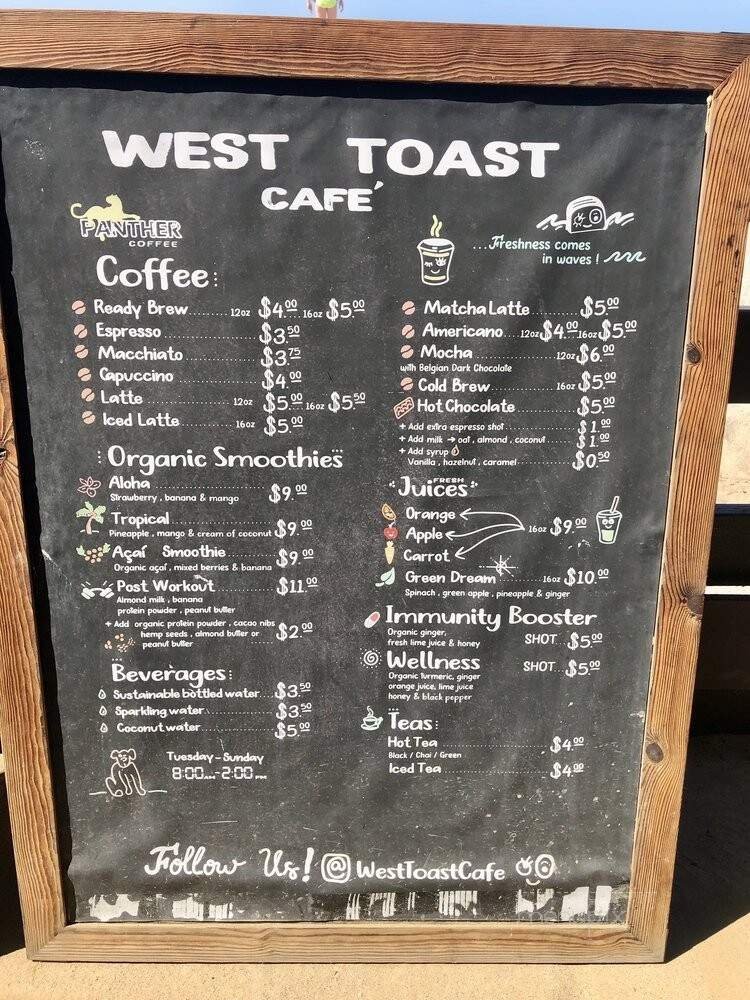 WEST TOAST
CAFÉ
PANTHER
COFFEE
...Freshness comes
in waves!
Coffee:
Ready Brew........ 12oz $4.00 16oz $5.00
Espresso.................. $3.50
Macchiato............... $3.75
Capuccino............... $4.00
Latte................ 12oz $5.00 16oz $5.50
Iced Latte........... 16oz $5.00
Matcha Latte............ $5.00
Americano....12oz $4.00 16oz $5.00
Mocha................ 12oz $6.00
with Belgian Dark Chocolate
Cold Brew............ 16oz $5.00
Hot Chocolate............ $5.00
+ Add extra espresso shot............ $1.00
+ Add milk → oat, almond, coconut...... $1.00
+ Add syrup
Vanilla, hazelnut, caramel............ $0.50
:Organic Smoothies
Aloha............
Strawberry, banana & mango $9.00
Tropical............
Pineapple, mango & cream of coconut $9.00
Açaí Smoothie............ $9.00
Organic açaí, mixed berries & banana
Post Workout............ $11.00
Almond milk, banana
protein powder, peanut butter
+ Add organic protein powder, cacao nibs
hemp seeds, almond butter or
peanut butter $2.00
FRESH
Juices
Orange
Apple 16oz $9.00
Carrot
Green Dream............ 16oz $10.00
Spinach, green apple, pineapple & ginger
Immunity Booster
Organic ginger,
fresh lime juice & honey SHOT.. $5.00
Wellness SHOT... $5.00
Organic turmeric, ginger
orange juice, lime juice
honey & black pepper
Beverages:
Sustainable bottled water... $3.50
Sparkling water............ $3.50
Coconut water............ $5.00
Teas:
Hot Tea............ $4.00
Black / Chai / Green
Iced Tea............ $4.00
Tuesday - Sunday
8:00am-2:00pm
Follow Us! @WestToastCafe